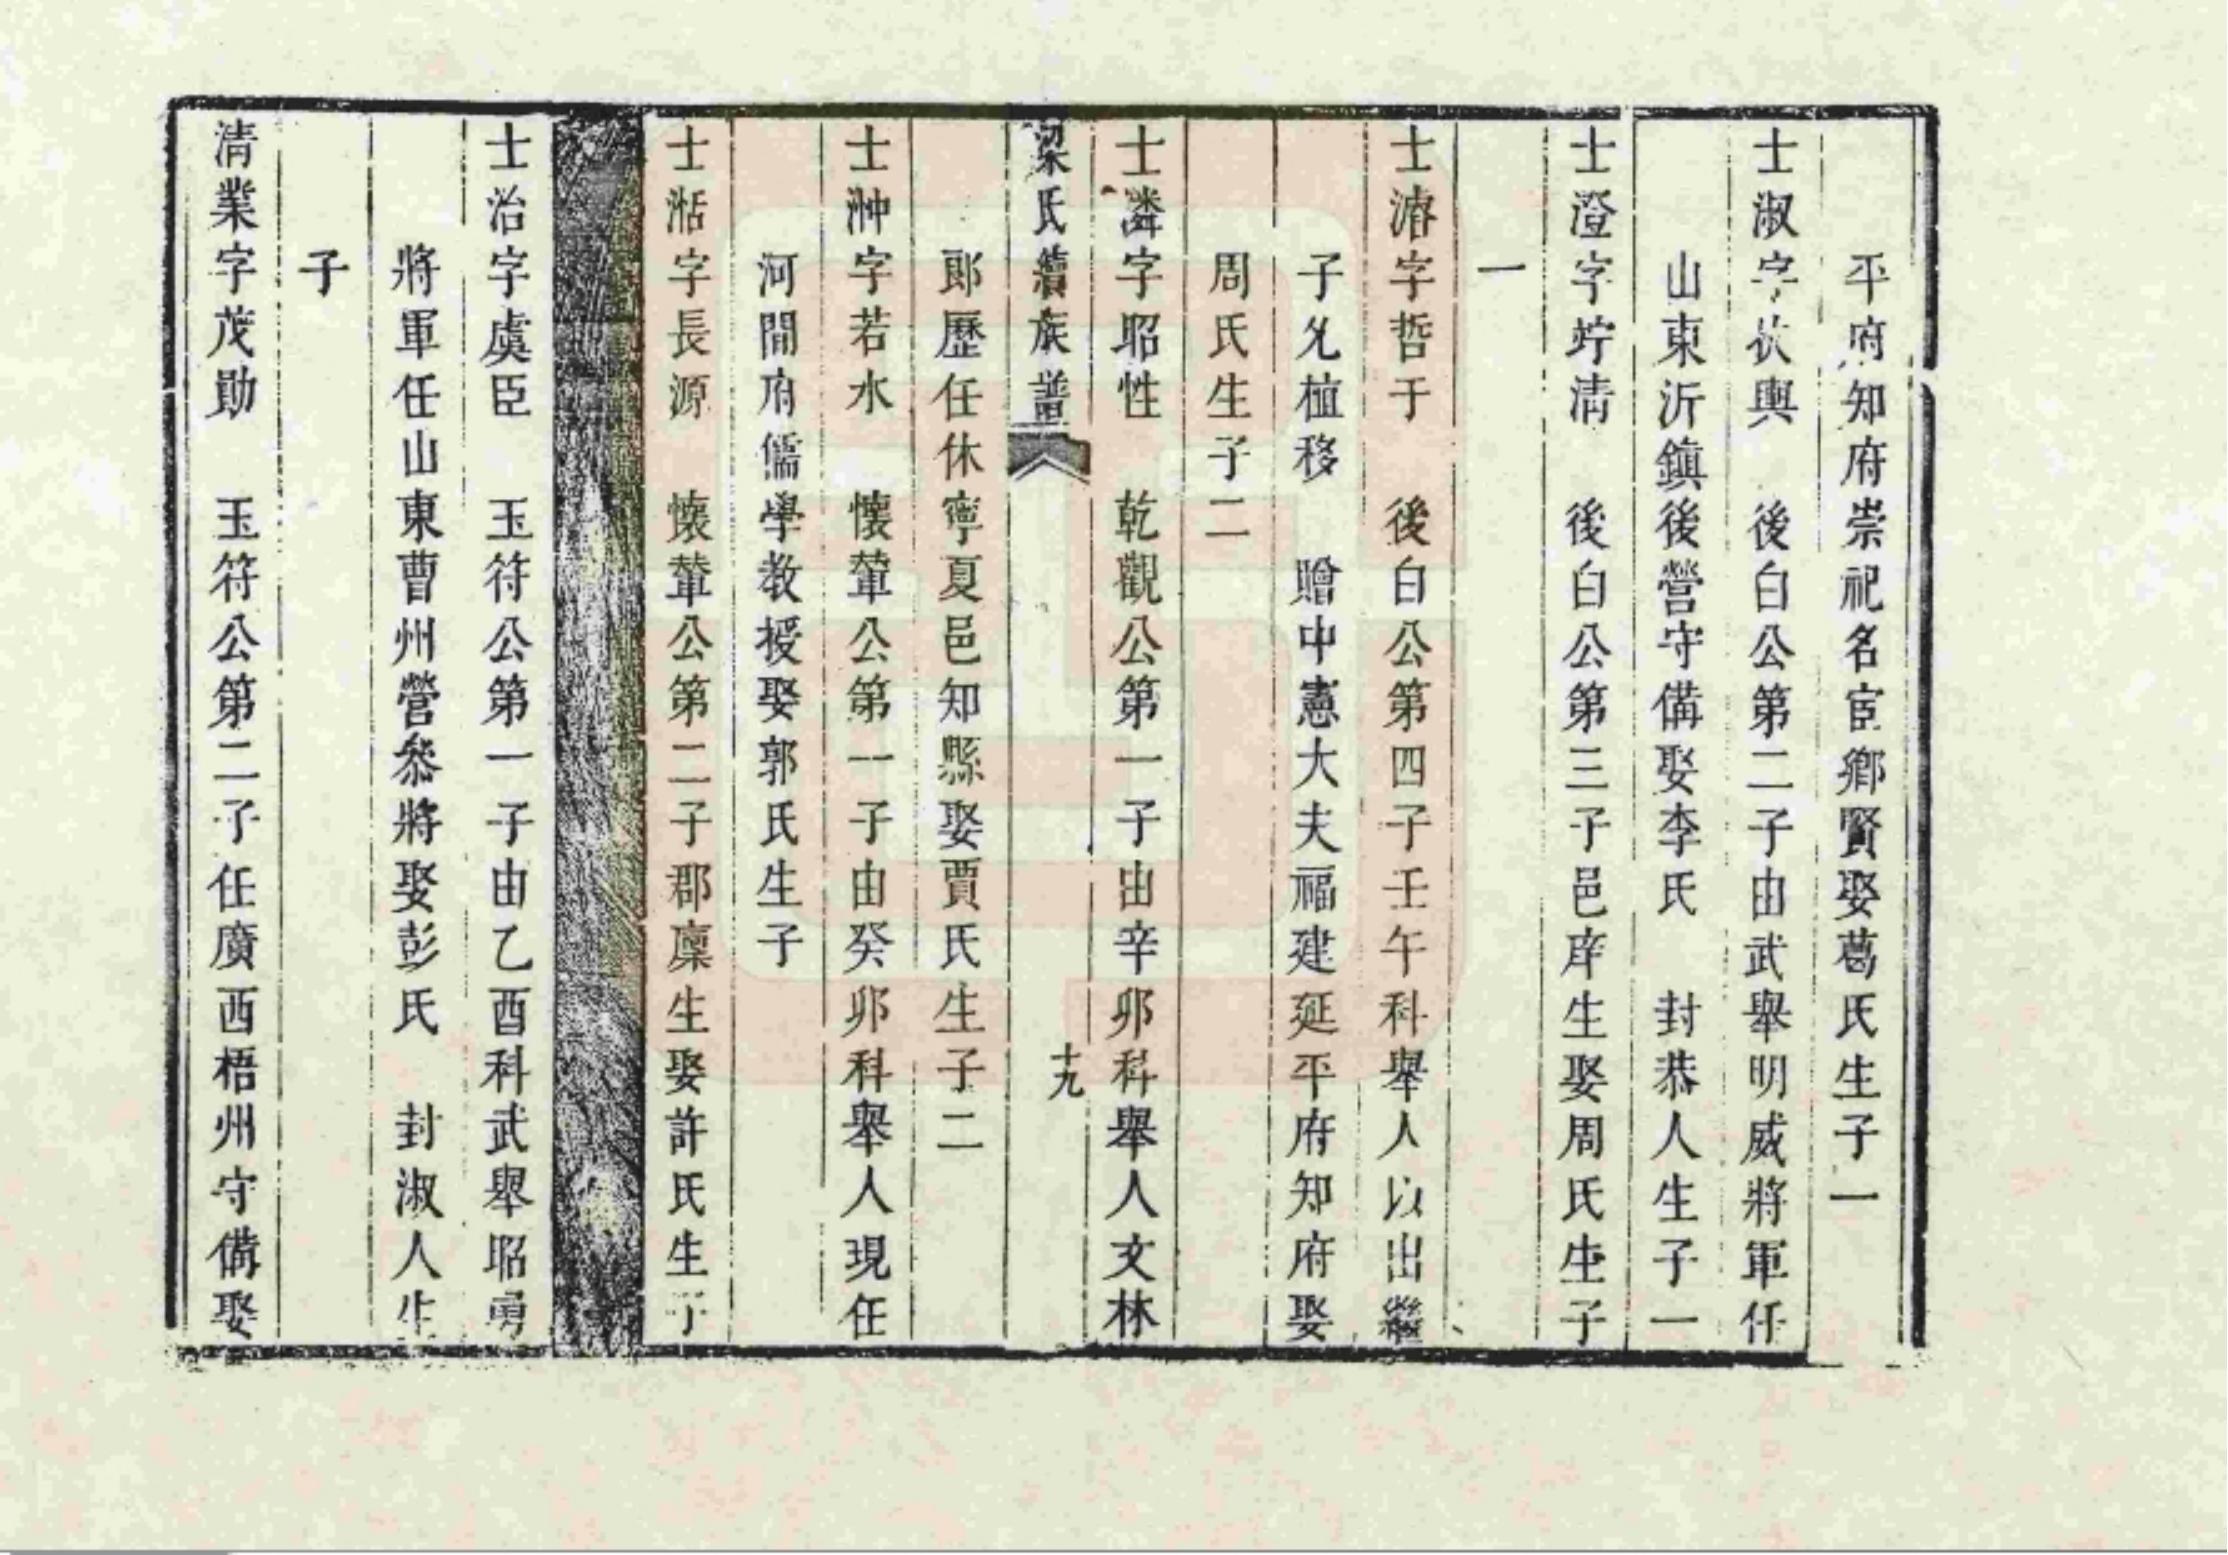 平府知府崇祀名宦鄉賢娶葛氏生子一
士淑字 輿 後白公第二子由武舉明威將軍任
山東沂鎮後營守備娶李氏 封恭人生子一
士澄字 清 後白公第三子邑庠生娶周氏生子
一
士濬字哲于 後白公第四子壬午科舉人以出繼
子允植移 贈中憲大夫福建延平府知府娶
周氏生子二
士潾字昭性 乾觀公第一子由辛卯科舉人文林
梁氏續族譜 十九
郎歷任休寧夏邑知縣娶賈氏生子二
士翀字若水 懷 公第一子由癸卯科舉人現任
河間府儒學教授娶郭氏生子
士湉字長源 懷 公第二子郡廩生娶許氏生子
士治字虞臣 玉符公第一子由乙酉科武舉昭勇
將軍任山東曹州營參將娶彭氏 封淑人生
子
清業字茂勛 玉符公第二子任廣西梧州守備娶